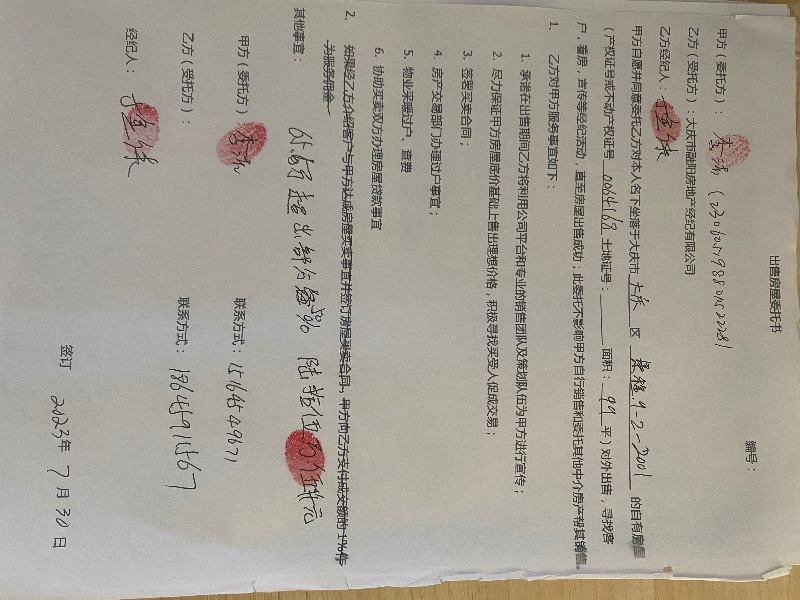 出售房屋委托书
编号：
甲方（委托方）：李 (230
乙方（受托方）：大庆市融阳房地产经纪有限公司
乙方经纪人：
甲方自愿并同意委托乙方对本人名下坐落于大庆市 区 9-2-2001 的自有房屋
（产权证号或不动产权证号 土地证号： 面积：99 平）对外出售，寻找客
户，看房，宣传等经纪活动，直至房屋出售成功；此委托不影响甲方自行销售和委托其他中介房产帮其销售。
1、 乙方对甲方服务事宜如下：
1、承诺在出售期间乙方将利用公司平台和专业的销售团队及策划队伍为甲方进行宣传；
2、尽力保证甲方房屋底价基础上售出理想价格，积极寻找买受人促成交易；
3、签署买卖合同；
4、房产交易部门办理过户事宜；
5、物业来暖过户 查费
6、协助买卖双方办理房屋贷款事宜
2、 如果经乙方介绍客户与甲方达成房屋买卖事宜并签订房屋买卖合同，甲方向乙方支付成交额的1%作
为服务佣金
其他事宜： 超出部分 % 陆拾伍万伍仟元
甲方（委托方）：李 联系方式：
乙方（受托方）： 联系方式：
经纪人：
签订 2023年 7月30日